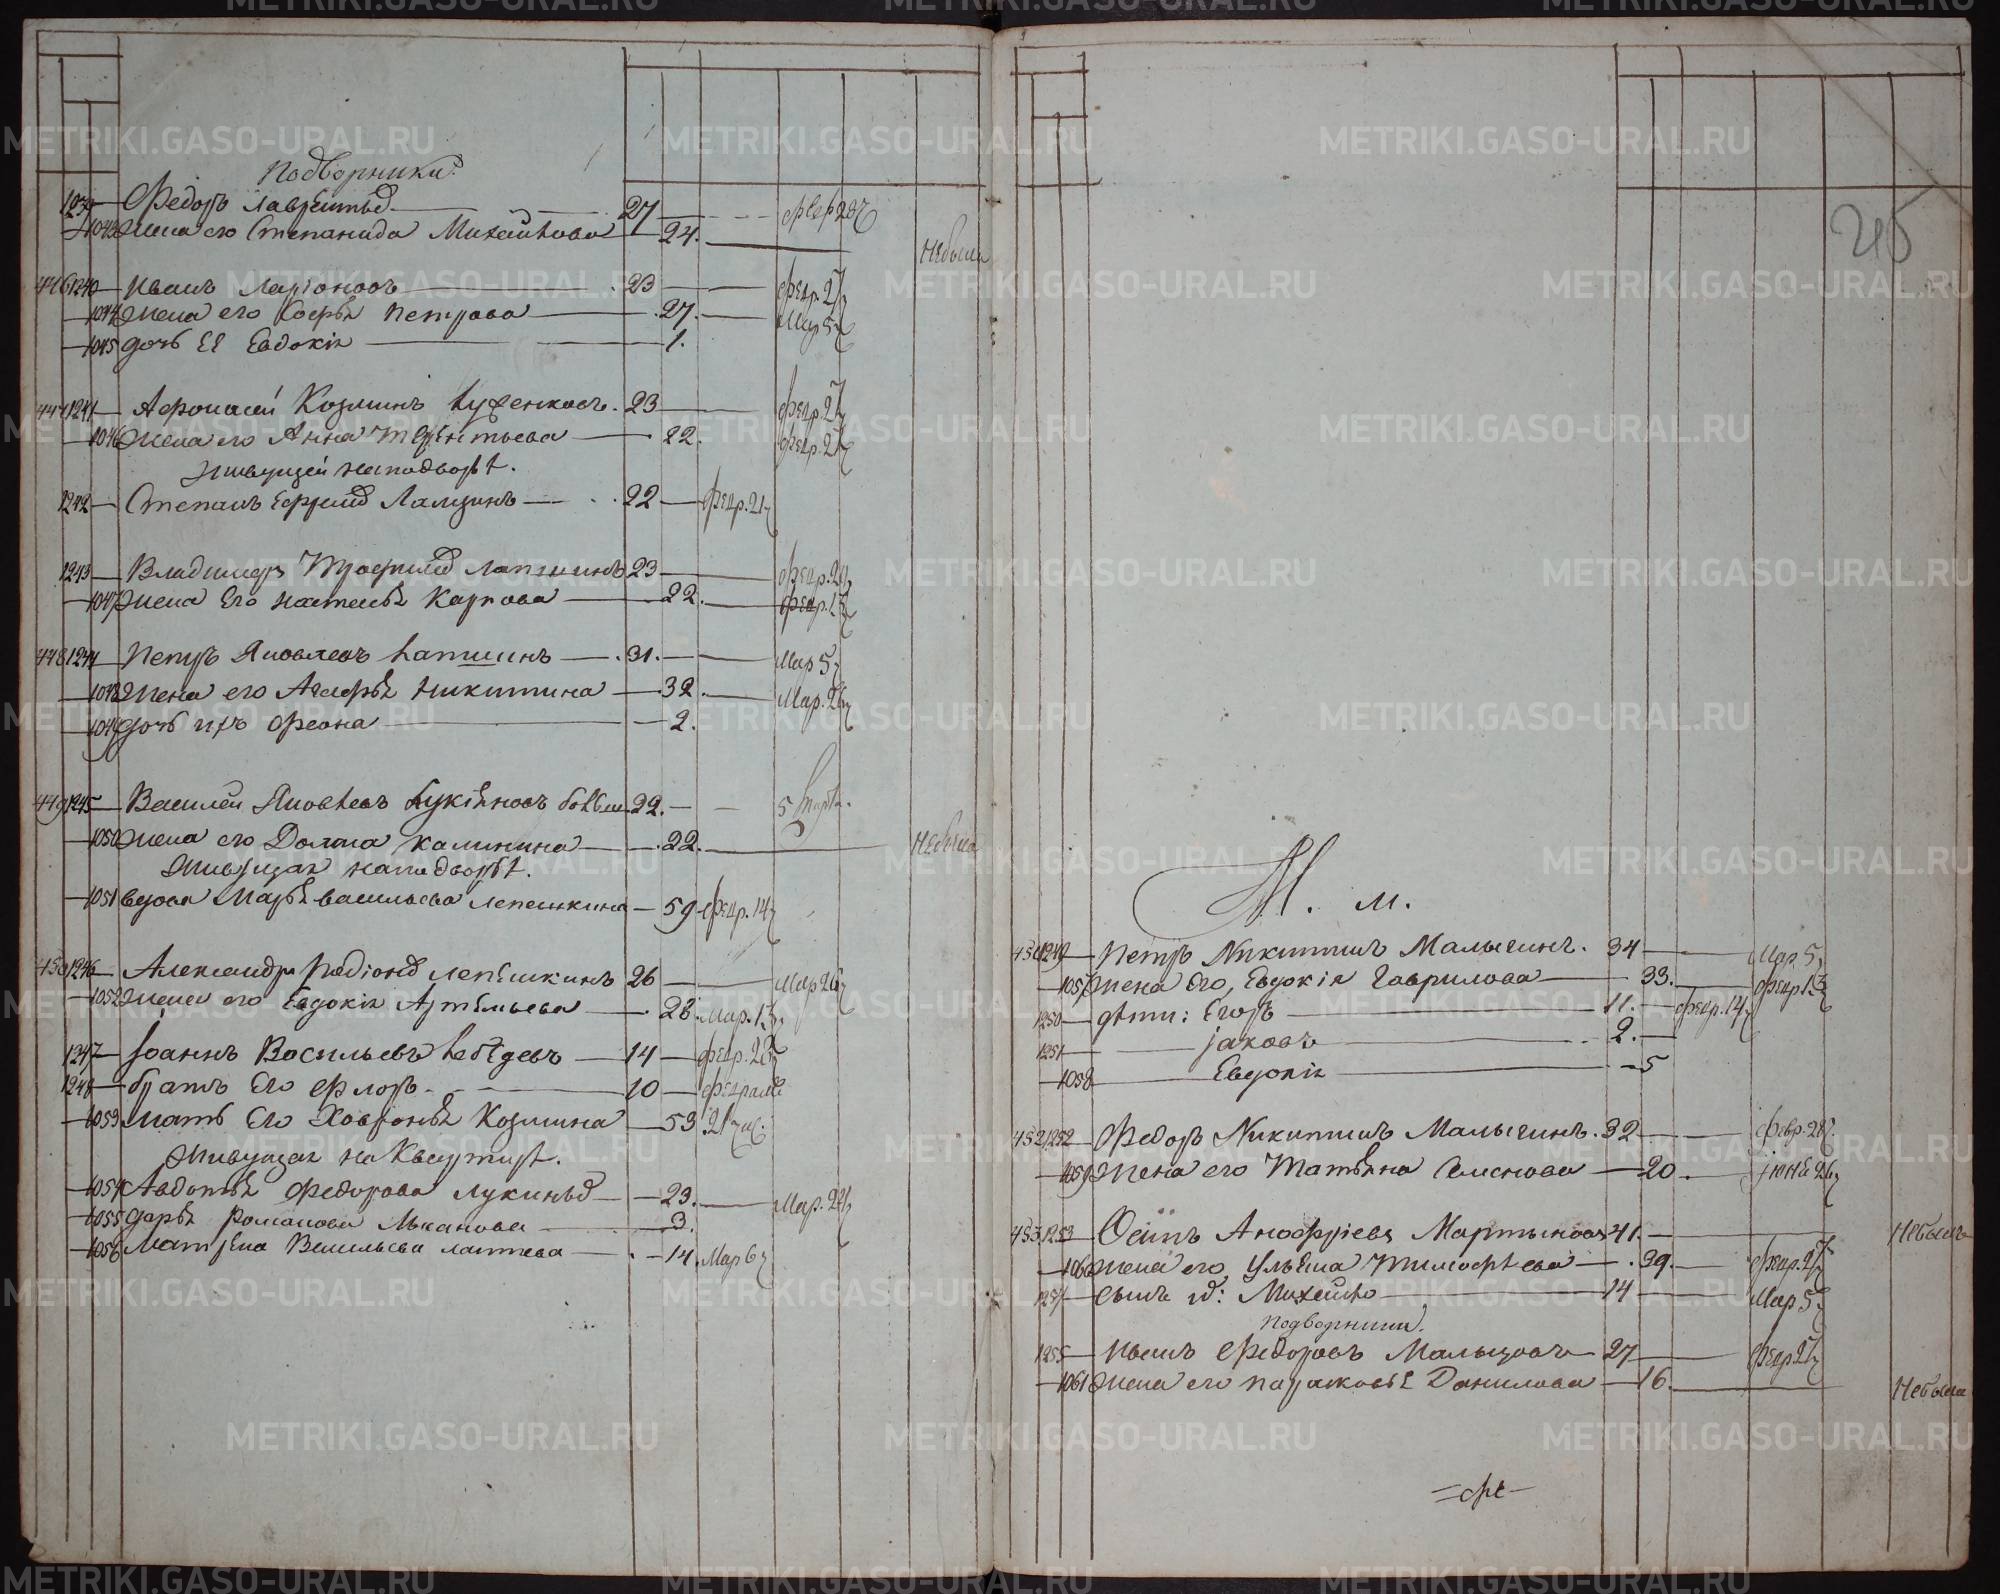 Подворники.
1239 — Федоръ Лаврентьев — 27 — февр 28
1043 жена его Степанида Михайлова — 24. Небыла
446 1240 — Иванъ Ларіоновъ — 23 — февр. 27
1044 жена его Софья Петрова — 27. — Мар 5
1045 дочь ее Евдокія — 1.
447 1241 — Афонасей Козминъ 23 — февр. 27
1046 жена его Анна Терентьева — 22. февр. 27
живущей наподворье.
1242 — Степанъ Ефремов Лямзинъ — 22 — февр. 21
1243 — Владимеръ Трофимов Лапшинъ 23 — февр.
1047 жена Его Наталья Карпова — 22. — февр. 13
448 1244 — Петръ Яковлевъ Лапшинъ — 31. — Мар 5
1048 жена его Агафья Никитина — 32. — Мар. 26
1049 дочь ихъ Феона — 2.
449 1245 — Василей Яковлевъ Лукьяновъ 22. — 5 марта.
1050 жена его Домна Калинина — 22. Небыла
живущая наподворье.
1051 вдова Марья Васильева Лепешкина — 59 февр. 14
450 1246 — Александръ Родіонов Лепешкинъ 26 — Мар 26
1052 жена его Евдокія Артемьева — 28. Мар. 13
1247 — Іоаннъ Васильевъ Лебедевъ — 14 — февр.
1248 — братъ Его Флоръ — 10 — февраля
1053 мать Его Ховронья Козмина — 53 21 чис.
живущая на Квартире.
1054 Авдотья Федорова Лукиных — 23. — Мар.
1055 дарья Романова — 3.
1056 Матрена Васильева Лаптева — 14. Мар 6
215
М. м.
451 1249 — Петръ Никитинъ Малыгинъ. 34 — Мар. 5
1057 жена Его, Евдокія Гаврилова — 33. — февр 13
1250 — дети: Егоръ — 11. — февр. 14
1251 — Іаковъ — 2. —
1058 — Евдокія — 5
452 1252 — Федоръ Никитинъ Малыгинъ. 32 — февр. 28
1059 жена его Татьяна Семенова — 20. — Іюня 26
453 1253 — Осипъ Анофріевъ Мартыновъ 41. — Небылъ
1060 жена его, Ульяна Тимофеева — 39. — февр. 27
1254 — сынъ Михайло — 14 — Мар 5
подворники.
1255 — Иванъ Федоровъ Мальцовъ — 27 — февр 27
1061 жена его Парасковья Данилова — 16. Небыла